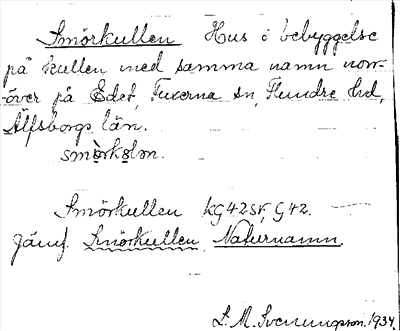 Smörkullen Hus i bebyggelse
på kullen med samma namn norr-
över på Edet, Fuxerna sn, Flundre hd,
Älfsborgs län.
smòrkɷlən.
Smörkullen KG42SV, G42.
Jämf. Smörkullen, Naturnamn.
L. M. Svenungsson. 1934.